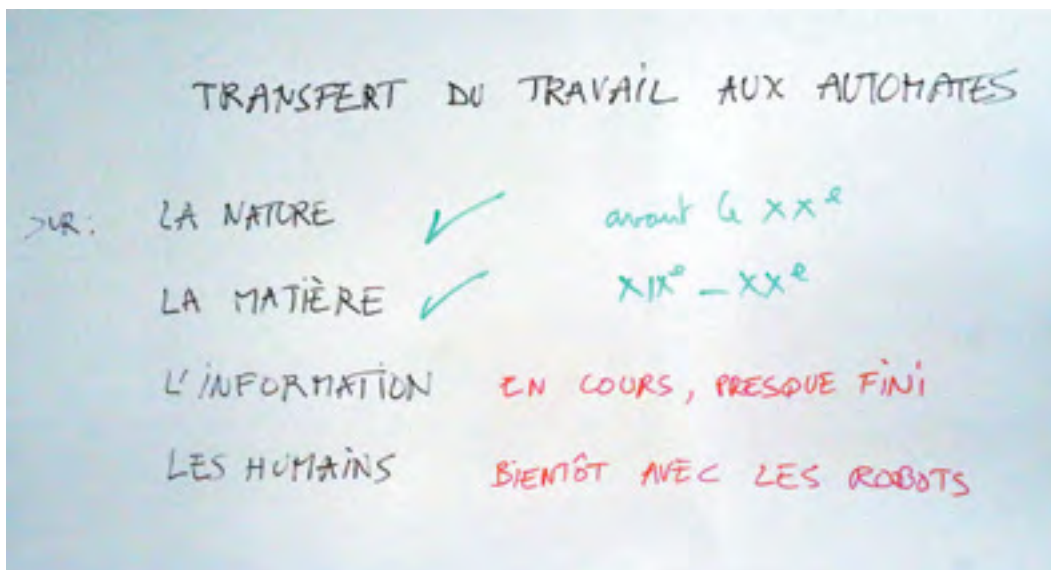 TRANSFERT DU TRAVAIL AUX AUTOMATES
SUR: LA NATURE ✓ avant le XXe
LA MATIÈRE ✓ XIXe - XXe
L'INFORMATION EN COURS, PRESQUE FINI
LES HUMAINS BIENTÔT AVEC LES ROBOTS